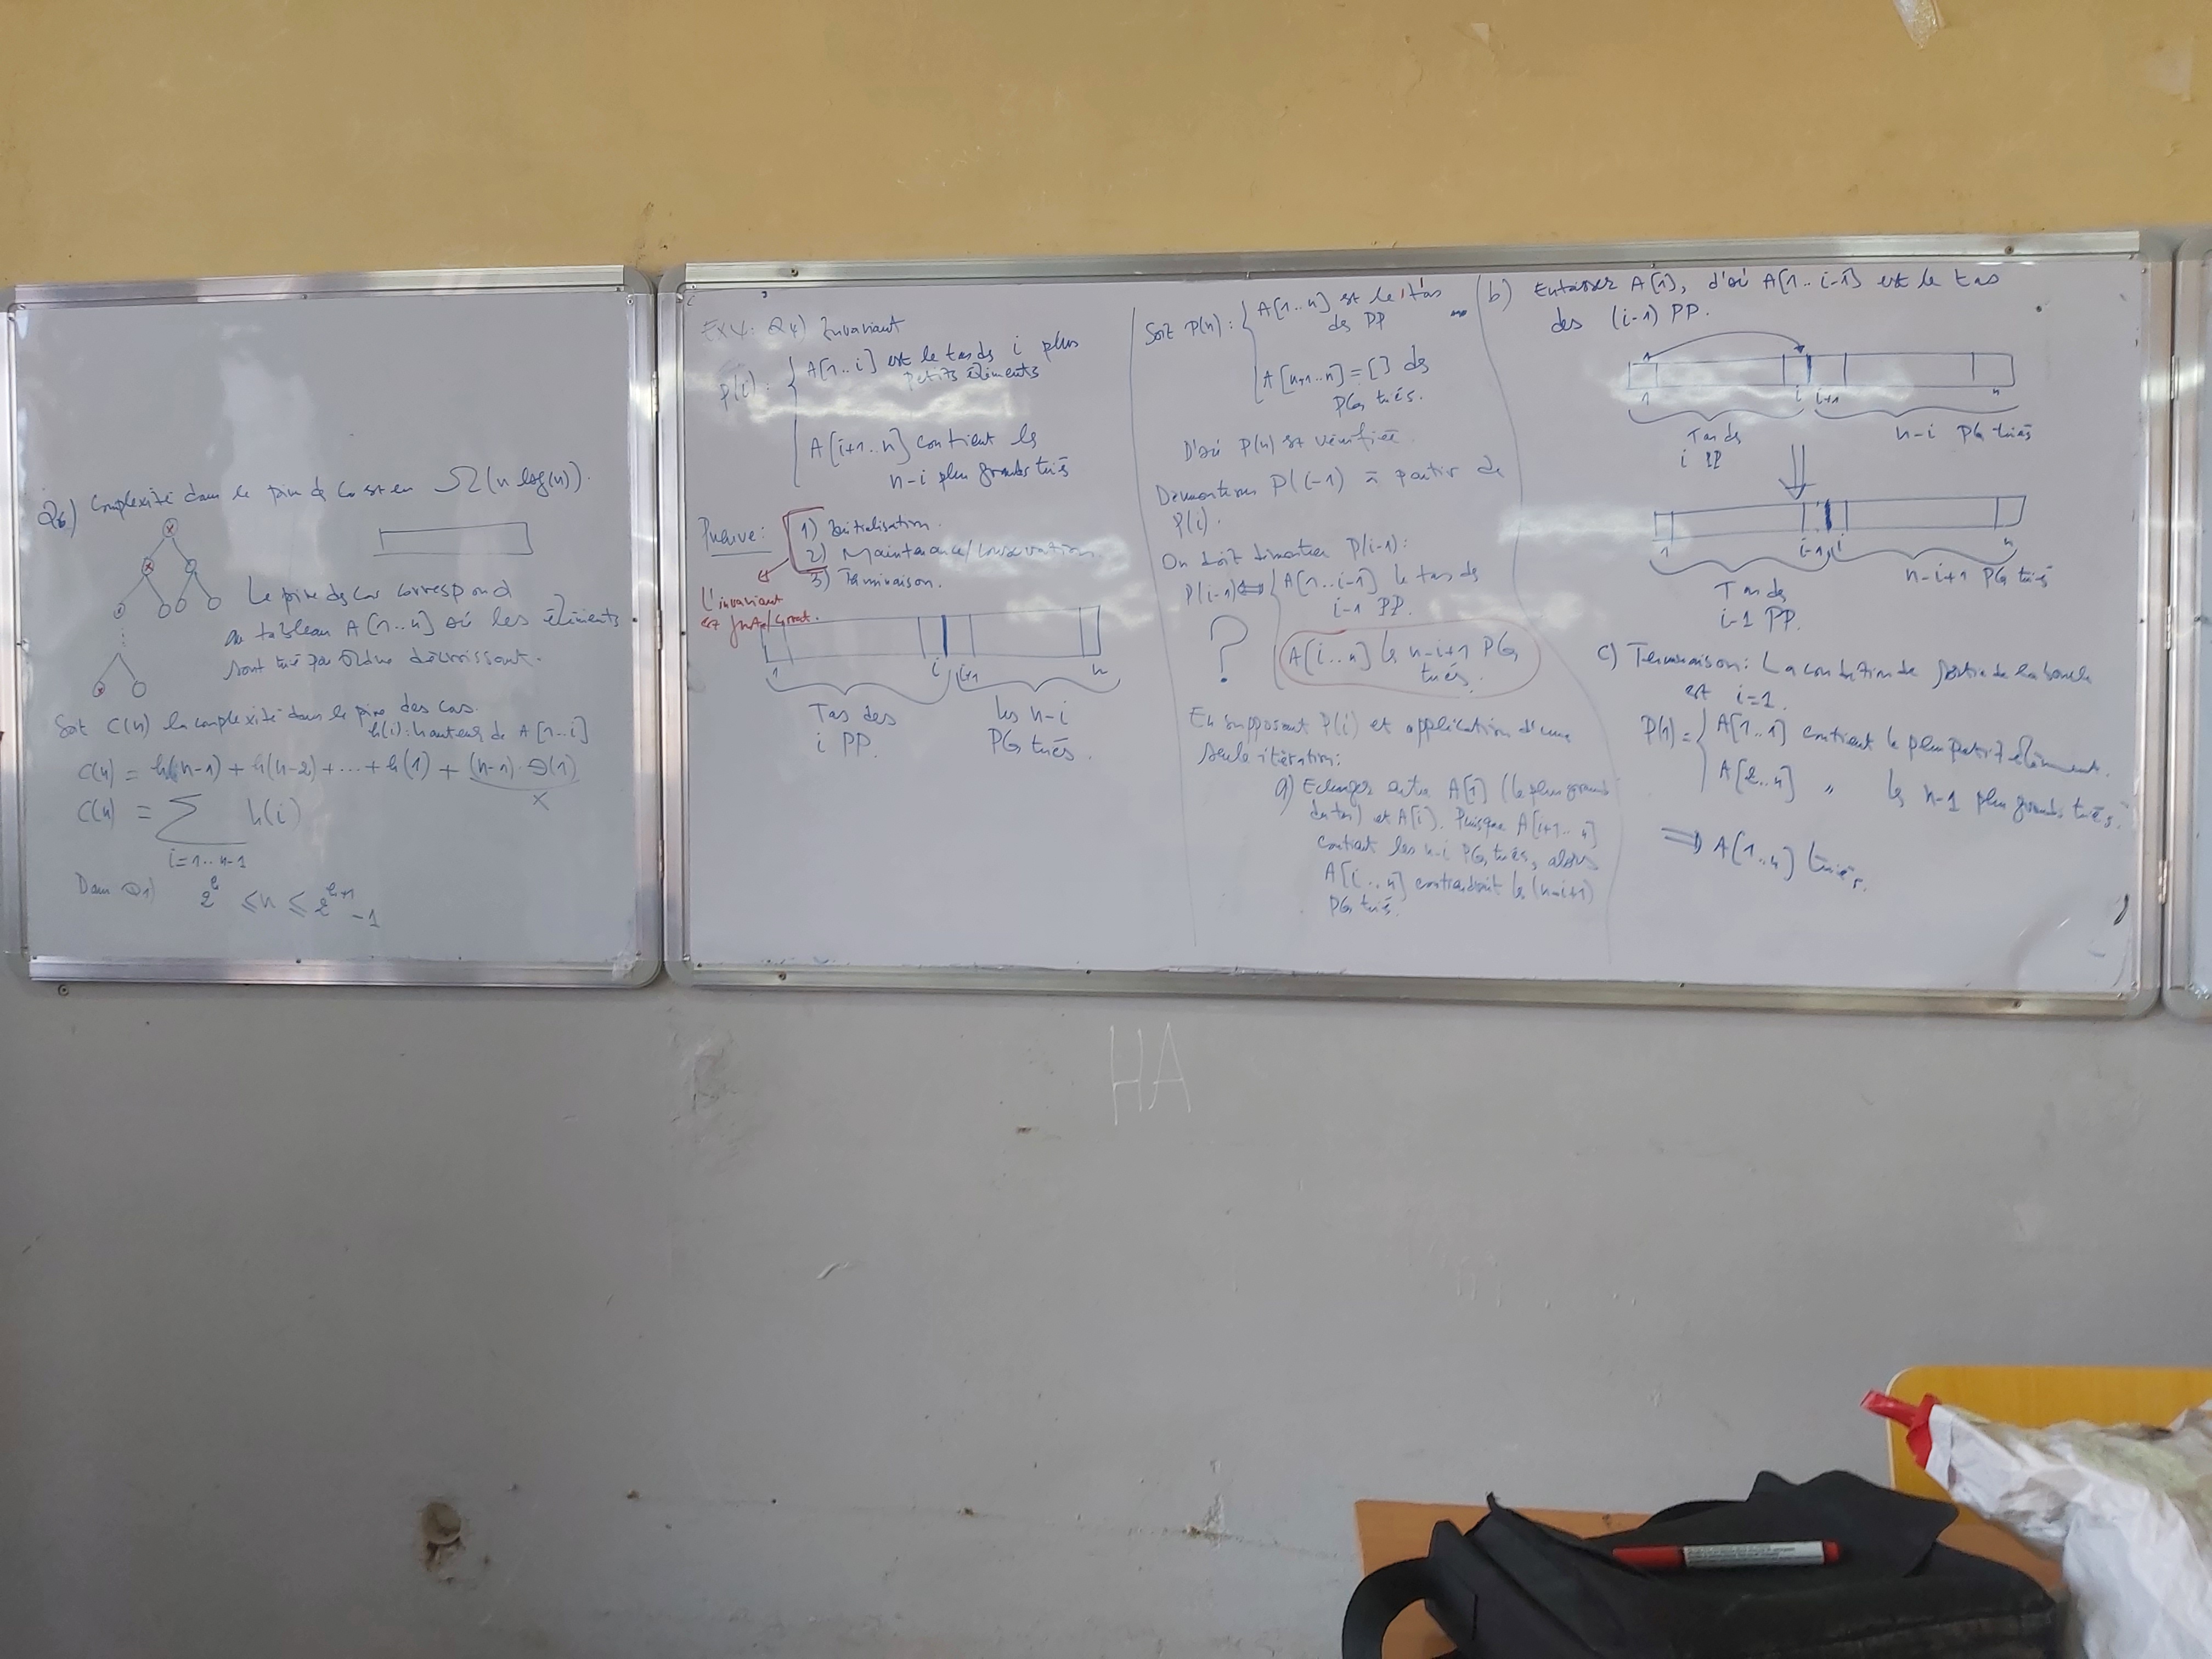 Q6) Complexité dans le pire des cas est en Ω(n log(n)).
Le pire des cas correspond
au tableau A[1..n] où les éléments
sont trié par ordre décroissant.
Soit C(n) la complexité dans le pire des cas.
h(i): hauteur de A[1..i]
C(n) = h(n-1) + h(n-2) + ... + h(1) + (n-1) Θ(1)
X
C(n) = ∑ h(i)
i=1..n-1
Dans Q1) 2^h ≤ n ≤ 2^(h+1) - 1
EX4: Q4) Invariant
P(i): A[1..i] est le tas ds i plus
petits éléments
A[i+1..n] contient ls
n-i plus grands triés
Preuve: 1) Initialisation.
2) Maintenance/conservation
3) Terminaison.
L'invariant
est
1 i i+1 n
Tas des
i PP.
les n-i
PG triés.
Soit P(n): A[1..n] est le tas
ds PP
A[n+1..n] = [] ds
PG triés.
D'où P(n) est vérifiée.
P(i-1) à partir de
P(i).
On doit démontrer P(i-1):
P(i-1) ⟺ A[1..i-1] le tas ds
i-1 PP.
?
A[i..n] ls n-i+1 PG
triés.
En supposant P(i) et application d'une
seule itération:
a) Echanger entre A[1] (le plus grand
du tas) et A[i]. Puisque A[i+1..n]
contient les n-i PG triés, alors
A[i..n] contiendrait ls (n-i+1)
PG triés.
b) Entasser A[1], d'où A[1..i-1] est le tas
des (i-1) PP.
1 i i+1 n
Tas ds
i PP
n-i PG triés
1 i-1 i n
Tas ds
i-1 PP.
n-i+1 PG triés
c) Terminaison: La condition de sortie de la boucle
est i=1.
P(1) = A[1..1] contient le plus petit élément.
A[2..n] " ls n-1 plus grands triés.
⟹ A[1..n] triés.
HA